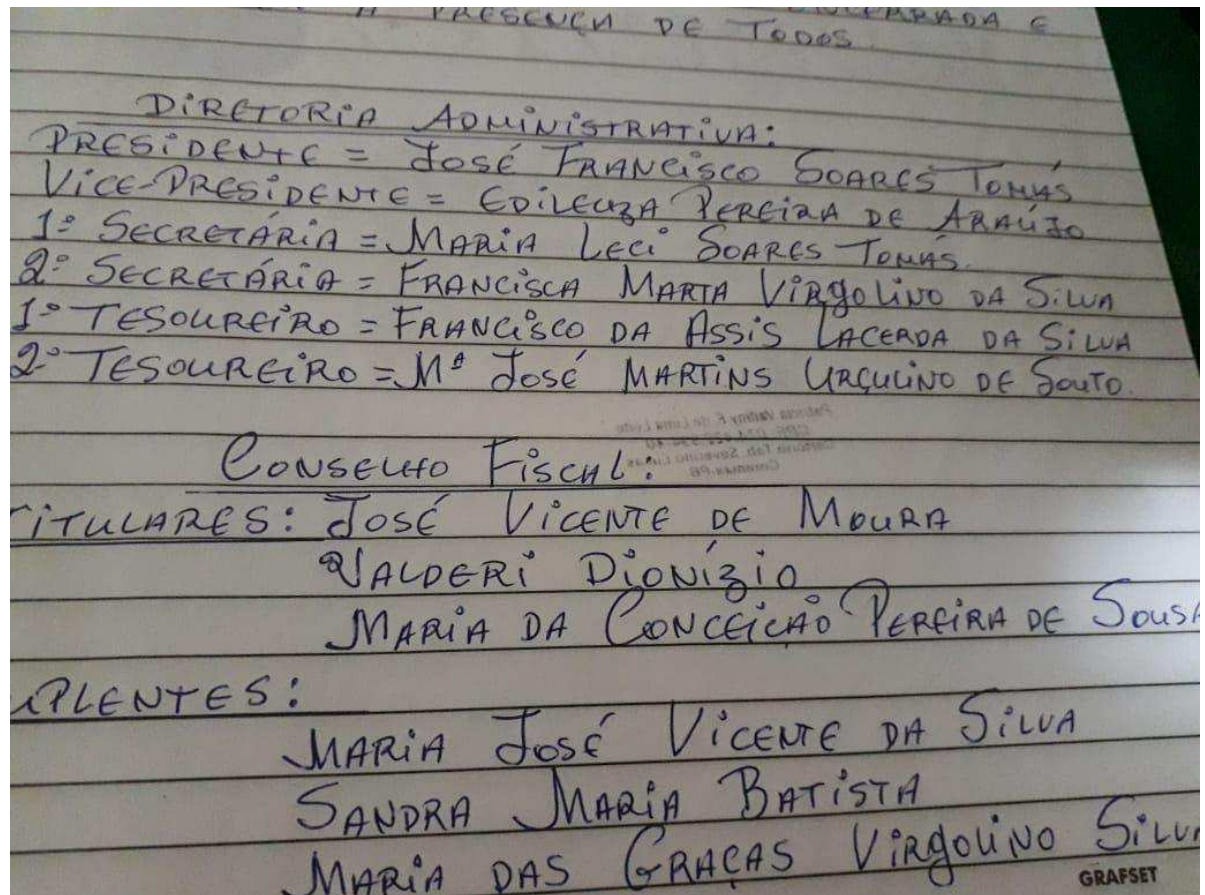 A PRESENÇA DE TODOS.
DIRETORIA ADMINISTRATIVA:
PRESIDENTE = JOSÉ FRANCISCO SOARES TOMÁS
VICE-PRESIDENTE = EDILEUZA PEREIRA DE ARAÚJO
1º SECRETÁRIA = MARIA LECI SOARES TOMÁS.
2º SECRETÁRIA = FRANCISCA MARTA VIRGOLINO DA SILVA
1º TESOUREIRO = FRANCISCO DA ASSIS LACERDA DA SILVA
2º TESOUREIRO = Mª JOSÉ MARTINS URÇULINO DE SOUTO.
CONSELHO FISCAL:
TITULARES: JOSÉ VICENTE DE MOURA
VALDERI DIONÍZIO
MARIA DA CONCEIÇÃO PEREIRA DE SOUSA
UPLENTES:
MARIA JOSÉ VICENTE DA SILVA
SANDRA MARIA BATISTA
MARIA DAS GRAÇAS VIRGOLINO SILVA
GRAFSET